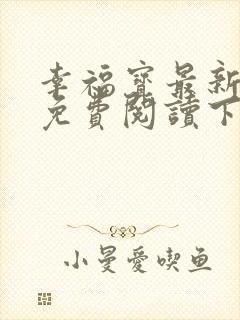 幸福寶最新
免費閱讀下
小曼愛喫鱼